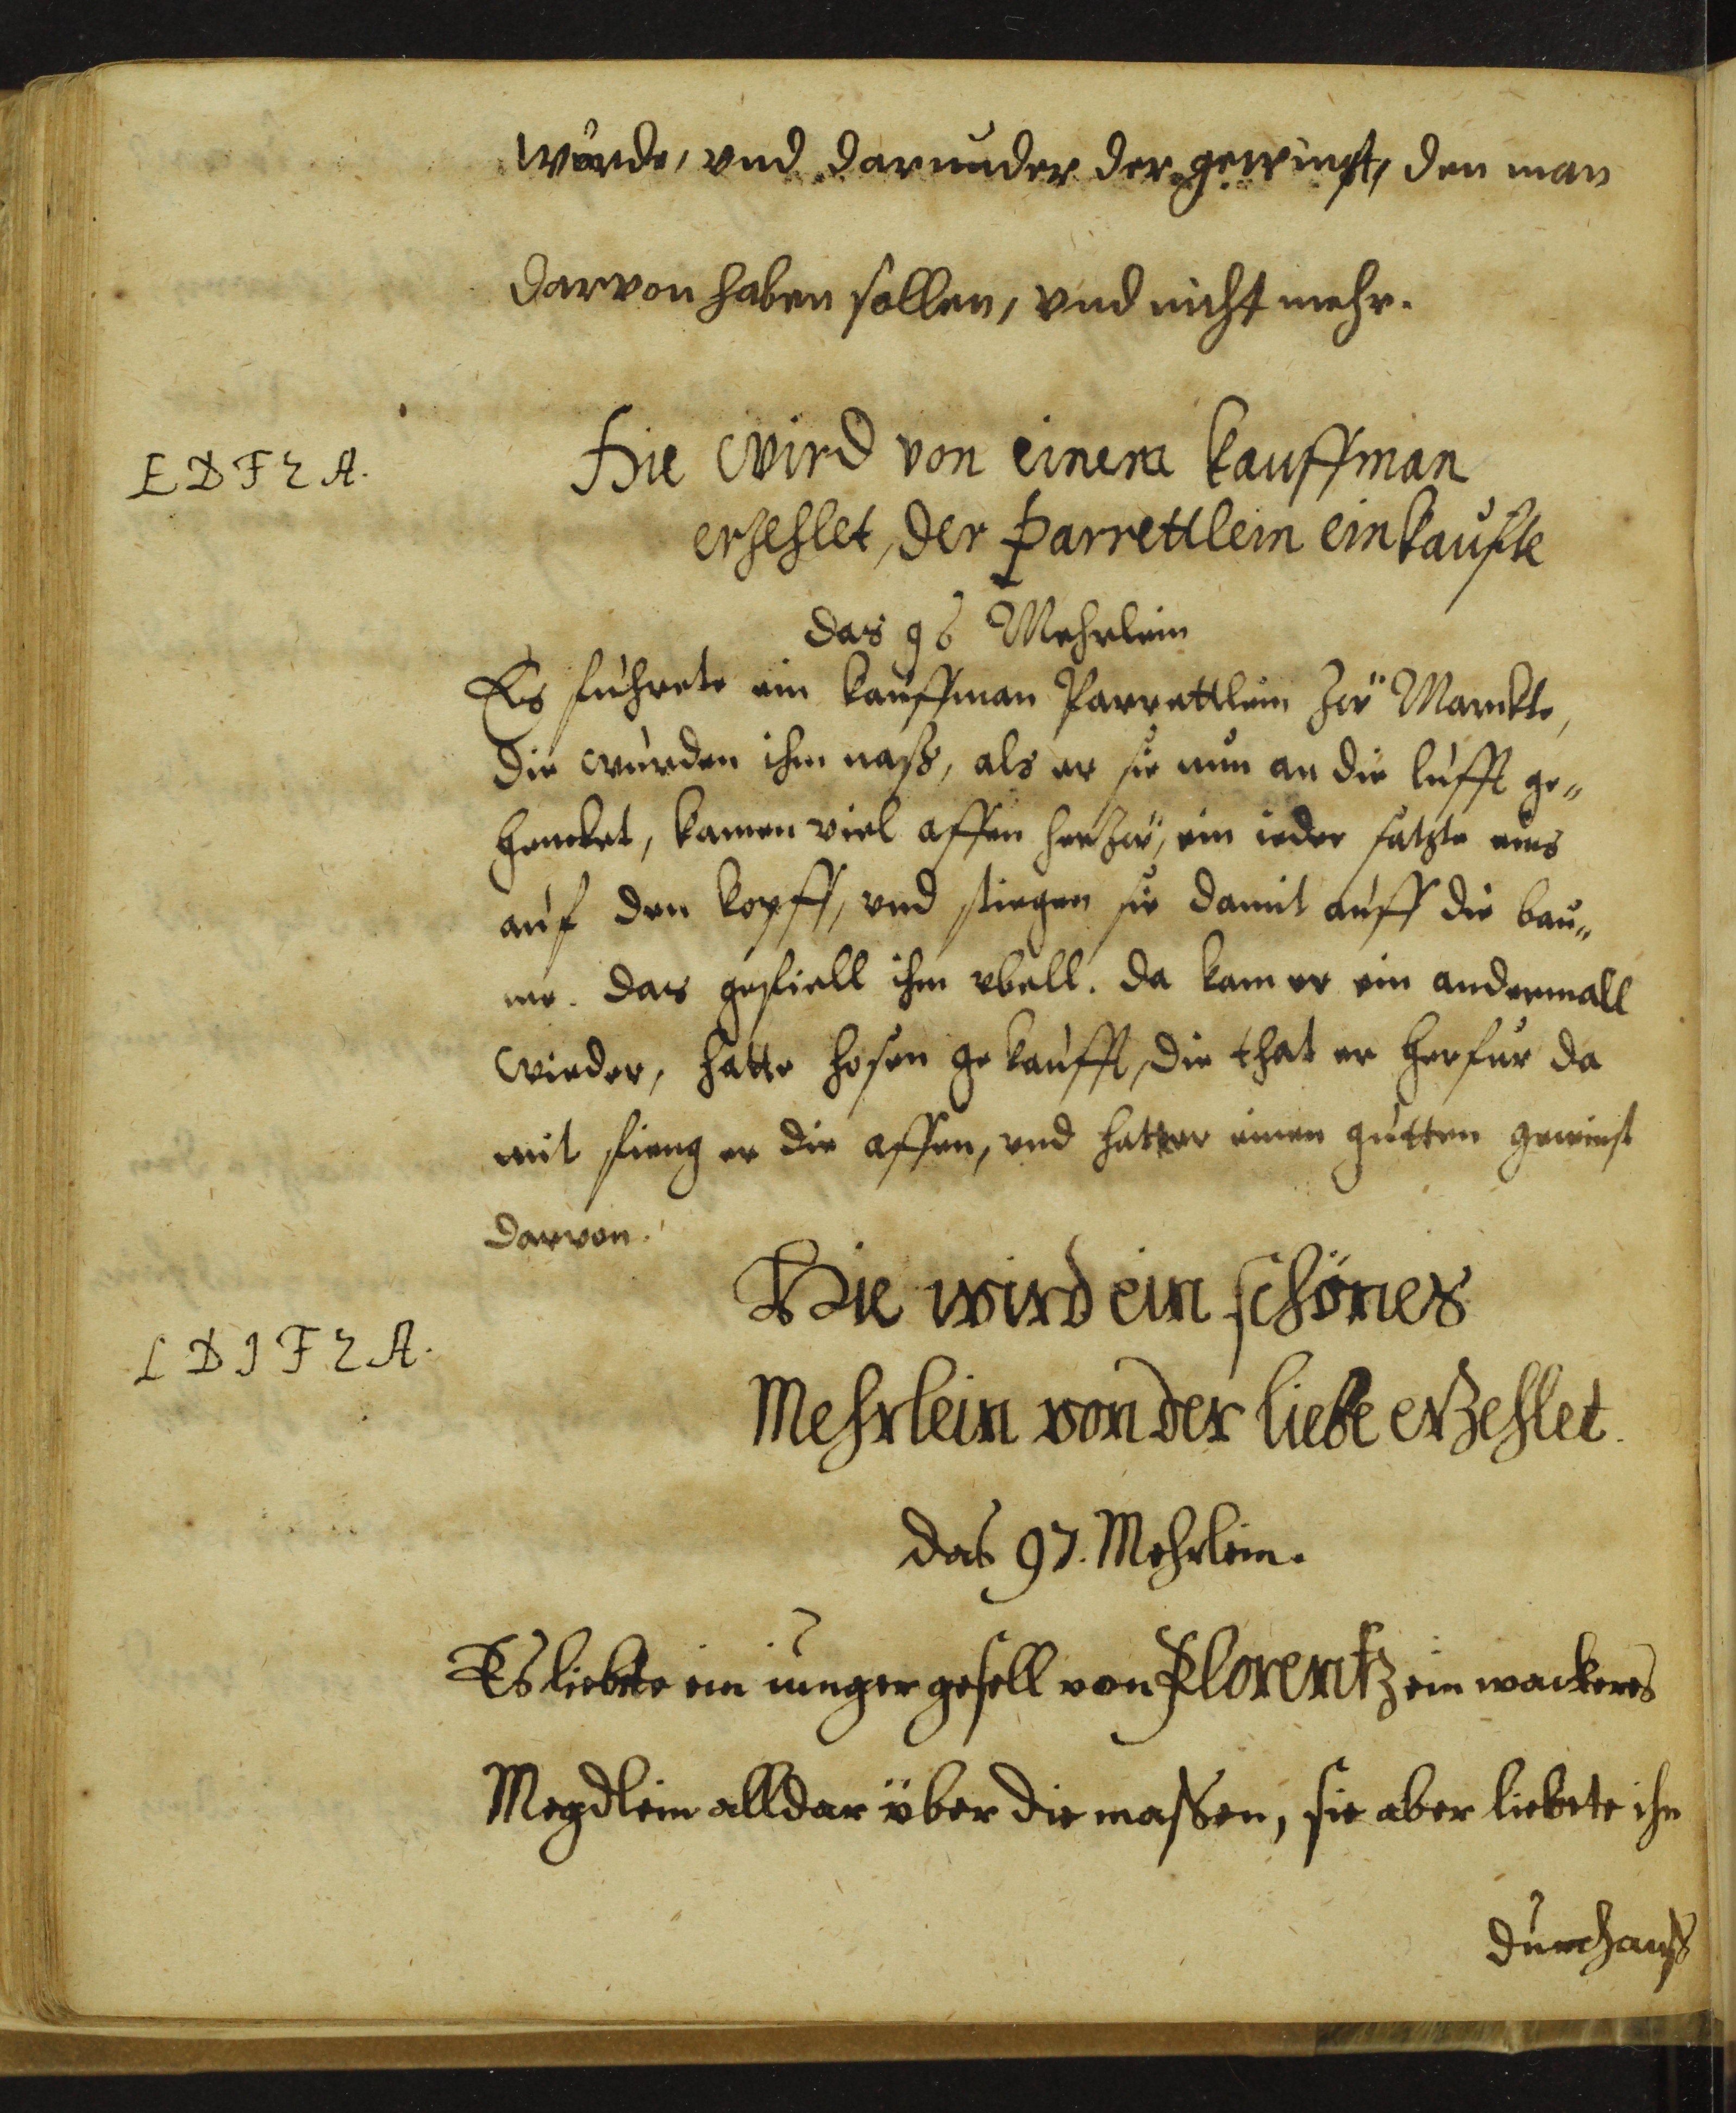 würde, vnd darunder der gewinst, den man
darvon haben sollen, vnd nicht mehr.
E D F Z A.
Hie wird von einem kauffman
erzehlet, der Parrettlein einkaufte
das 96 Mehrlein
Es fuhrete ein kauffman Parrettlein zu Marckte,
die wurden ihm naß, als er sie nun an die lufft ge„
hencket, kamen viel affen herzu, ein ieder satzte eins
auf den kopff, vnd stiegen sie damit auff die bau„
me. das gefiell ihm vbell. da kam er ein andermall
wieder, hatte hosen gekaufft, die that er herfur da
mit fieng er die affen, vnd hatte er einen gutten gewinst
darvon.
L D I F Z A.
Hie wird ein schönes
Mehrlein von der liebe erzehlet.
das 97. Mehrlein.
Es liebete ein iunger gesell von Florentz ein wackeres
Megdlein alldar über die massen, sie aber liebete ihn
durchauß